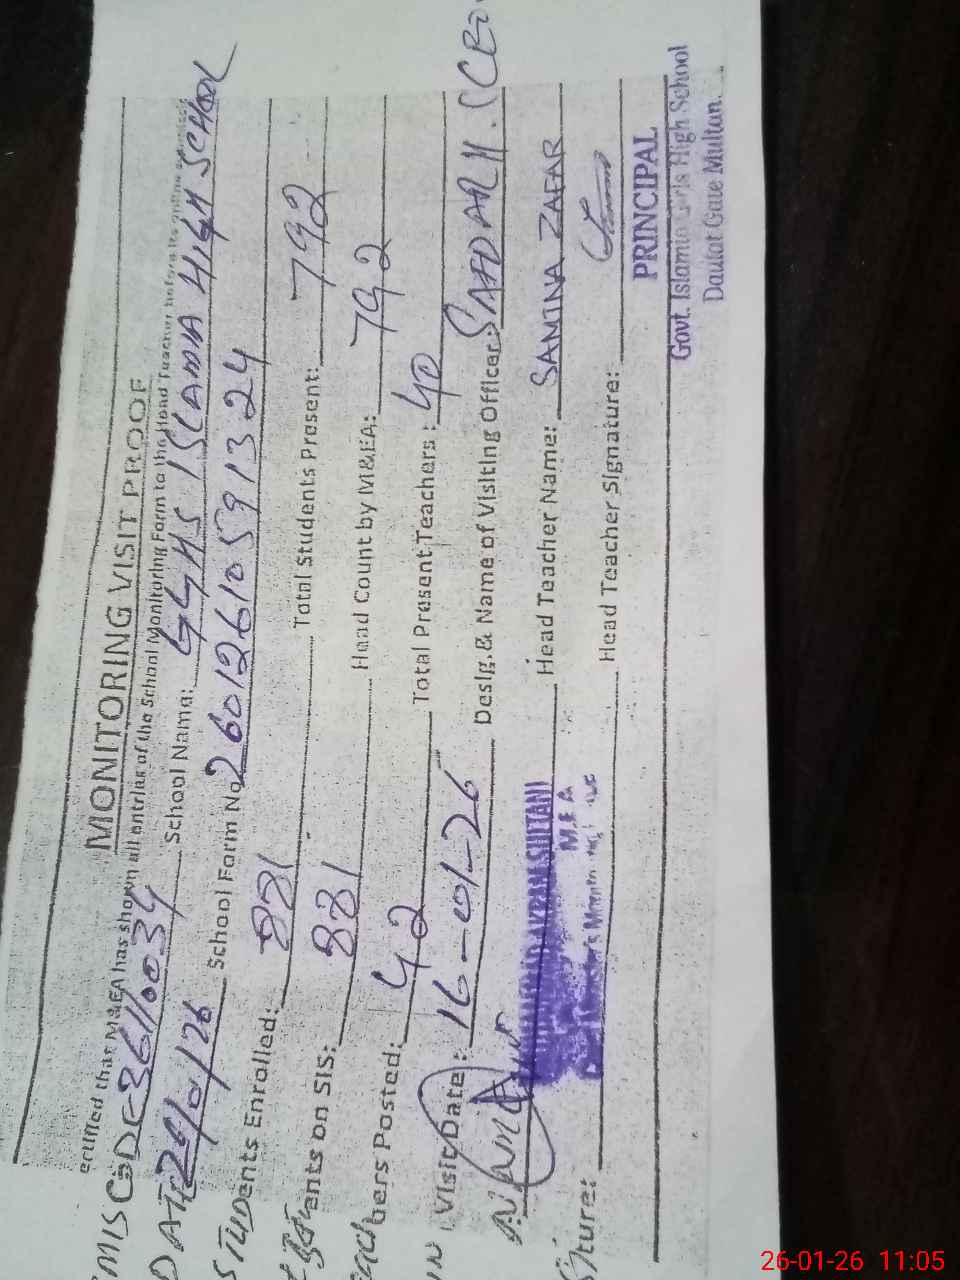 MONITORING VISIT PROOF
ertified that M&EA has shown all entries of the School Monitoring Form to the Head Teacher before its online
EMIS CODE 36110034 School Name: GGHS ISLAMIA HIGH SCHOOL
DATE 26/01/26 School Form No 2601261059 1324
STUDents Enrolled: 881 Total Students Present: 792
ents on SIS: 881 Head Count by M&EA: 792
Teachers Posted: 42 Total Present Teachers: 40
Visit Date: 16-01-26 Desig. & Name of Visiting Officer: SAFDAR H. (CEO
Head Teacher Name: SAMINA ZAFAR
M.E.A
ture: Head Teacher Signature:
PRINCIPAL
Govt. Islamia Girls High School
Daulat Gate Multan.
26-01-26 11:05